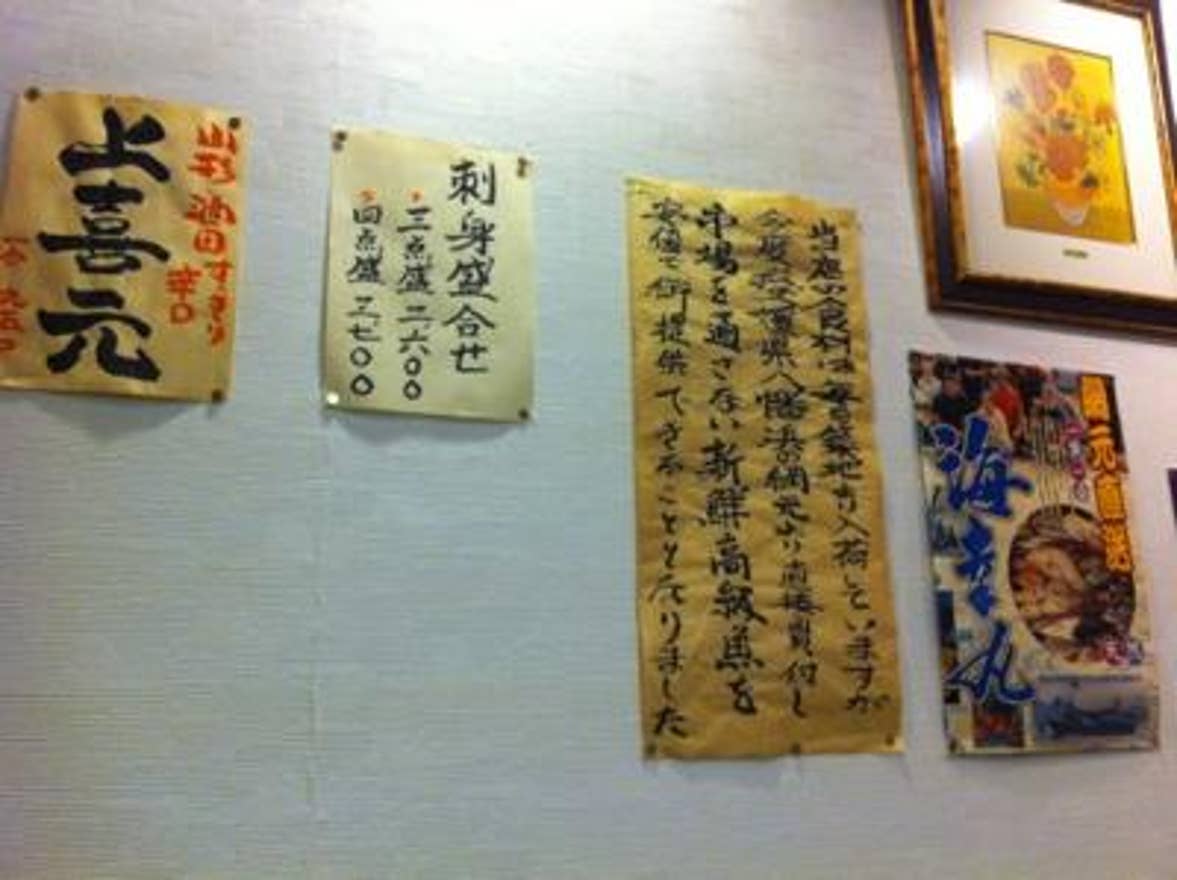 山形 酒田 すっきり
辛口
上喜元
刺身盛合せ
三点盛 二六〇〇
四点盛 三七〇〇
当店の食材は毎日築地より入荷していますが
県八幡浜網元より直接買付し
市場を通さない新鮮高級魚を
安値で御提供できることと成りました
網元直送
海幸丸